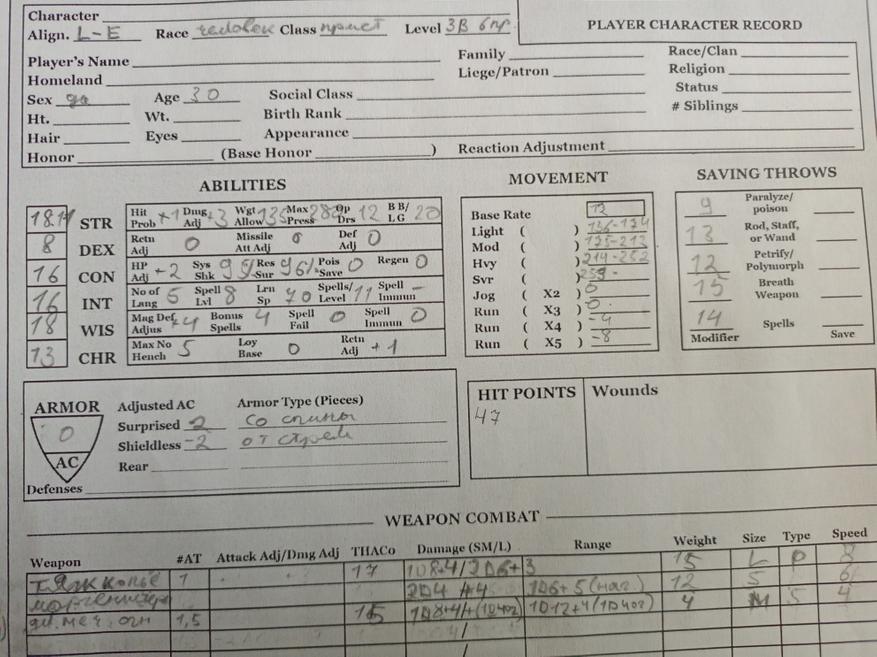 Character
PLAYER CHARACTER RECORD
Align. L-E Race человек Class прист Level 3В 6пр
Player's Name Family Race/Clan
Homeland Liege/Patron Religion
Sex да Age 30 Social Class Status
Ht. Wt. Birth Rank # Siblings
Hair Eyes Appearance
Honor (Base Honor ) Reaction Adjustment
ABILITIES
STR Hit Prob +1 Dmg Adj +3 Wgt Allow 135 Max Press 280 Op Drs 12 BB/LG 20
8 DEX Retn Adj 0 Missile Att Adj 0 Def Adj 0
16 CON HP Adj +2 Sys Shk 95% Res Sur 96% Pois Save 0 Regen 0
16 INT No of Lang 5 Spell Lvl 8 Lrn Sp 70 Spells/Level 11 Spell Immun -
18 WIS Mag Def Adjus +4 Bonus Spells 4 Spell Fail 0 Spell Immun 0
13 CHR Max No Hench 5 Loy Base 0 Retn Adj +1
MOVEMENT
Base Rate 12
Light ( ) 136-174
Mod ( ) 175-213
Hvy ( ) 214-252
Svr ( ) 253-
Jog ( X2 ) 0
Run ( X3 ) 0
Run ( X4 ) -4
Run ( X5 ) -8
SAVING THROWS
9 Paralyze/poison
13 Rod, Staff, or Wand
12 Petrify/Polymorph
15 Breath Weapon
14 Spells
Modifier Save
ARMOR
0
AC
Adjusted AC Armor Type (Pieces)
Surprised 2 со спины
Shieldless -2 от стрел
Rear
Defenses
HIT POINTS Wounds
47
WEAPON COMBAT
Weapon #AT Attack Adj/Dmg Adj THACo Damage (SM/L) Range Weight Size Type Speed
тяж копьё 1 17 1D8+4/2D6+3 15 L P 8
моргенштерн 2D4 +4 1D6+5 12 S 6
дл. меч. огн 1,5 15 1D8+4/+(1D4ог) 1D12+4(1D4ог) 4 M S 4